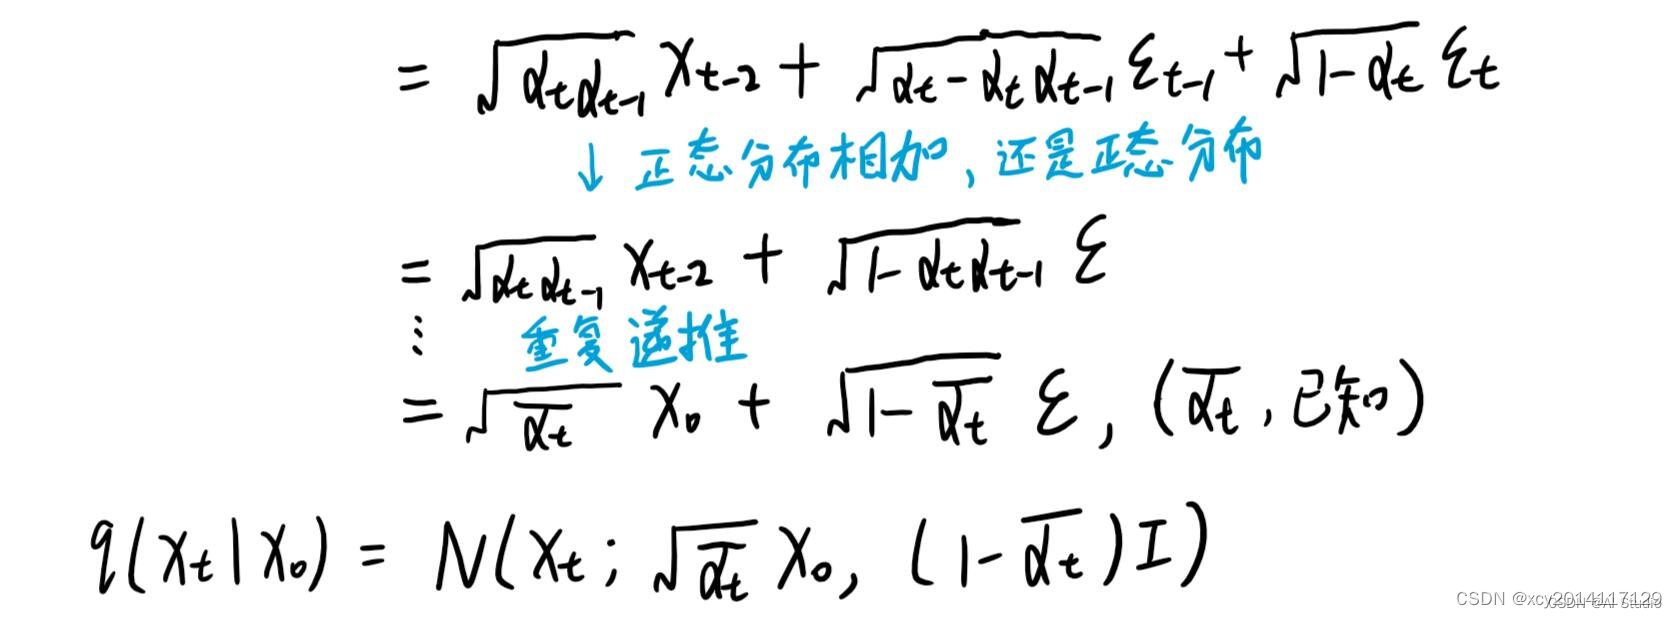 = √(α_t α_{t-1}) x_{t-2} + √(α_t - α_t α_{t-1}) ε_{t-1} + √(1-α_t) ε_t
↓ 正态分布相加, 还是正态分布
= √(α_t α_{t-1}) x_{t-2} + √(1-α_t α_{t-1}) ε
⋮ 重复递推
= √(ᾱ_t) x_0 + √(1-ᾱ_t) ε, (ᾱ_t, 已知)
q(x_t|x_0) = N(x_t; √(ᾱ_t) x_0, (1-ᾱ_t)I)
CSDN @xcy2014117129
CSDN @AI Studio